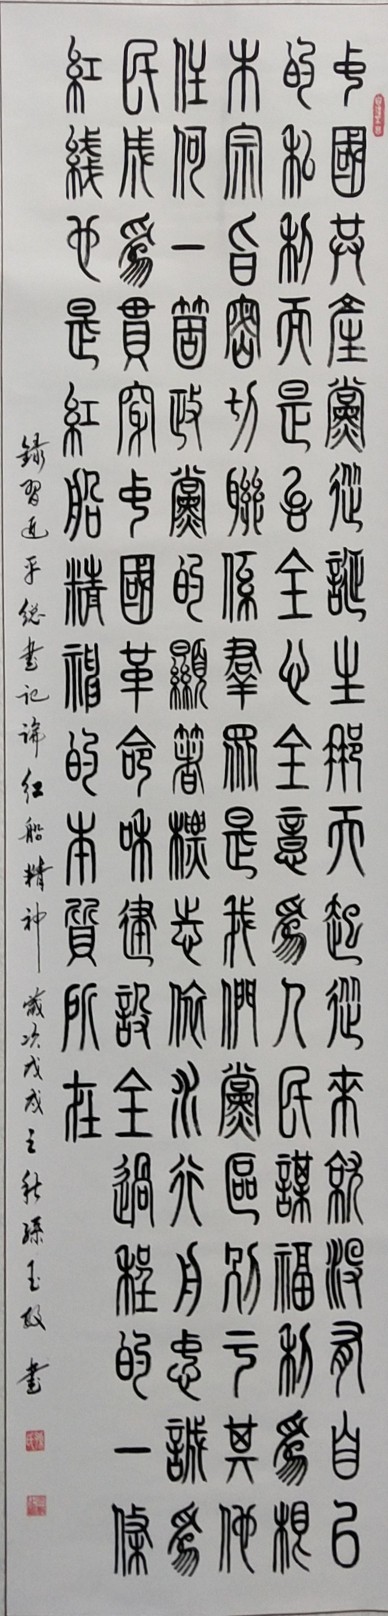 中國共產黨從誕生那天起從來就沒有自己
的私利而是以全心全意爲人民謀福利爲根
本宗旨密切聯係羣眾是我們黨區別于其他
任何一箇政黨的顯著標志依水行舟忠誠爲
民成爲貫穿中國革命和建設全過程的一條
紅綫也是紅船精神的本質所在
錄習近平總書記論紅船精神 歲次戊戌之秋孫玉敏書